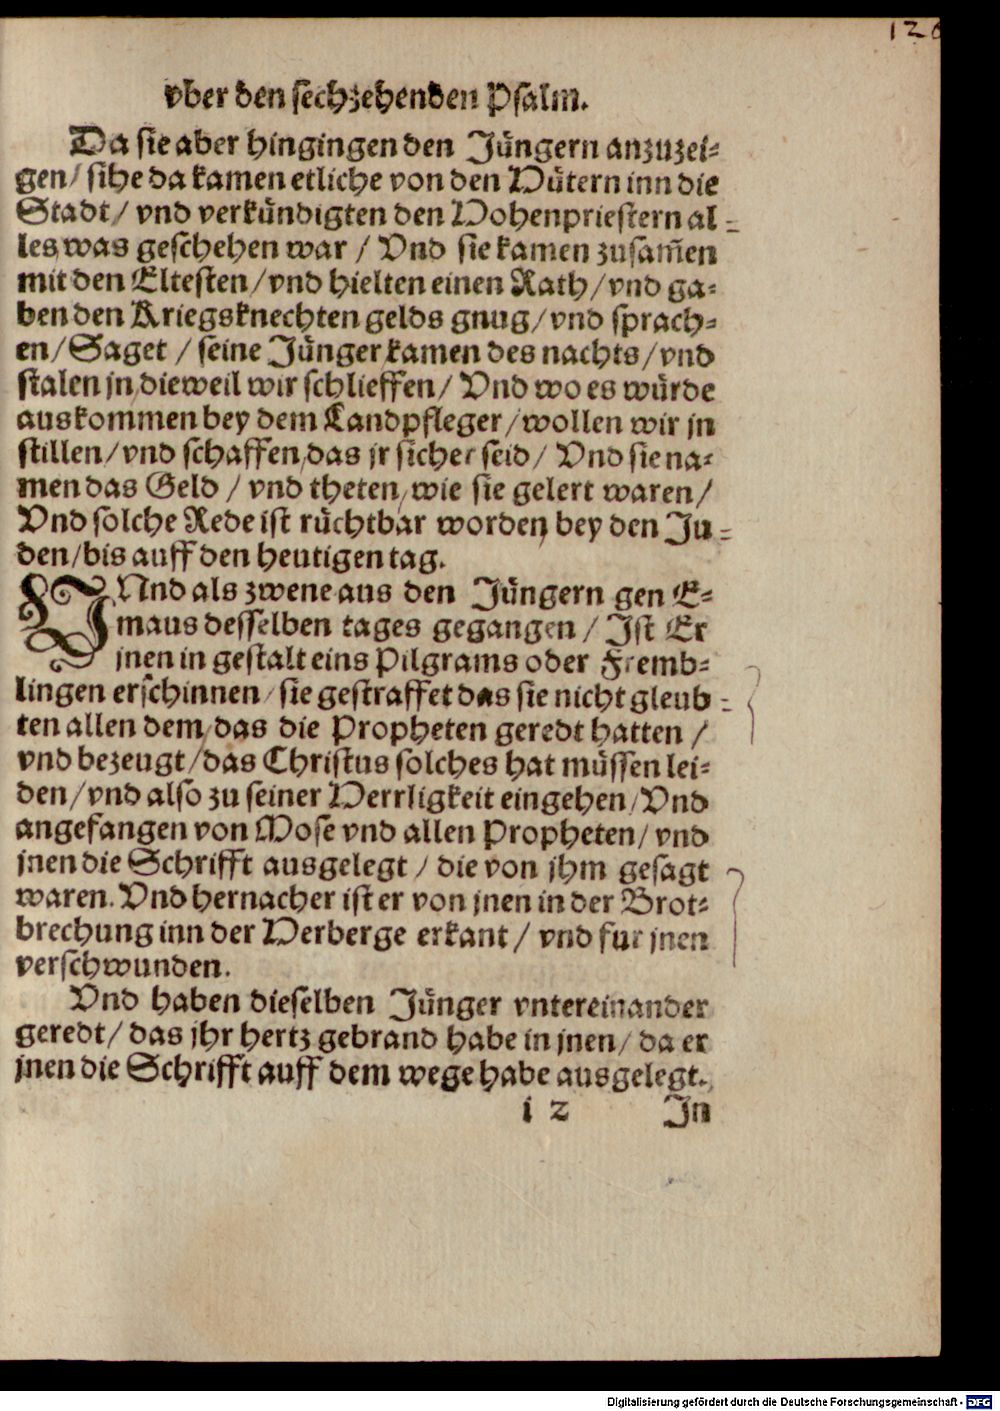 126
vber den sechzehenden Psalm.
Da sie aber hingingen den Jüngern anzuzei-
gen/ sihe da kamen etliche von den Hütern inn die
Stadt/ vnd verkündigten den Hohenpriestern al-
les, was geschehen war / Vnd sie kamen zusam̃en
mit den Eltesten/vnd hielten einen Rath/vnd ga-
ben den Kriegsknechten gelds gnug/vnd sprach-
en/Saget / seine Jünger kamen des nachts/vnd
stalen jn, dieweil wir schlieffen/ Vnd wo es würde
auskommen bey dem Landpfleger/wollen wir jn
stillen/vnd schaffen, das jr sicher seid/ Vnd sie na-
men das Geld / vnd theten, wie sie gelert waren/
Vnd solche Rede ist rüchtbar worden, bey den Jü-
den/bis auff den heutigen tag.
VNd als zwene aus den Jüngern gen E-
maus desselben tages gegangen/ Ist Er
jnen in gestalt eins Pilgrams oder Fremb-
lingen erschinnen, sie gestraffet das sie nicht gleub-
ten allen dem, das die Propheten geredt hatten /
vnd bezeugt/das Christus solches hat müssen lei-
den/vnd also zu seiner Herrligkeit eingehen, Vnd
angefangen von Mose vnd allen Propheten/ vnd
jnen die Schrifft ausgelegt / die von jhm gesagt
waren. Vnd hernacher ist er von jnen in der Brot-
brechung inn der Herberge erkant/ vnd fur jnen
verschwunden.
Vnd haben dieselben Jünger vntereinander
geredt/ das jhr hertz gebrand habe in jnen/ da er
jnen die Schrifft auff dem wege habe ausgelegt.
i 2 In
Digitalisierung gefördert durch die Deutsche Forschungsgemeinschaft - DFG